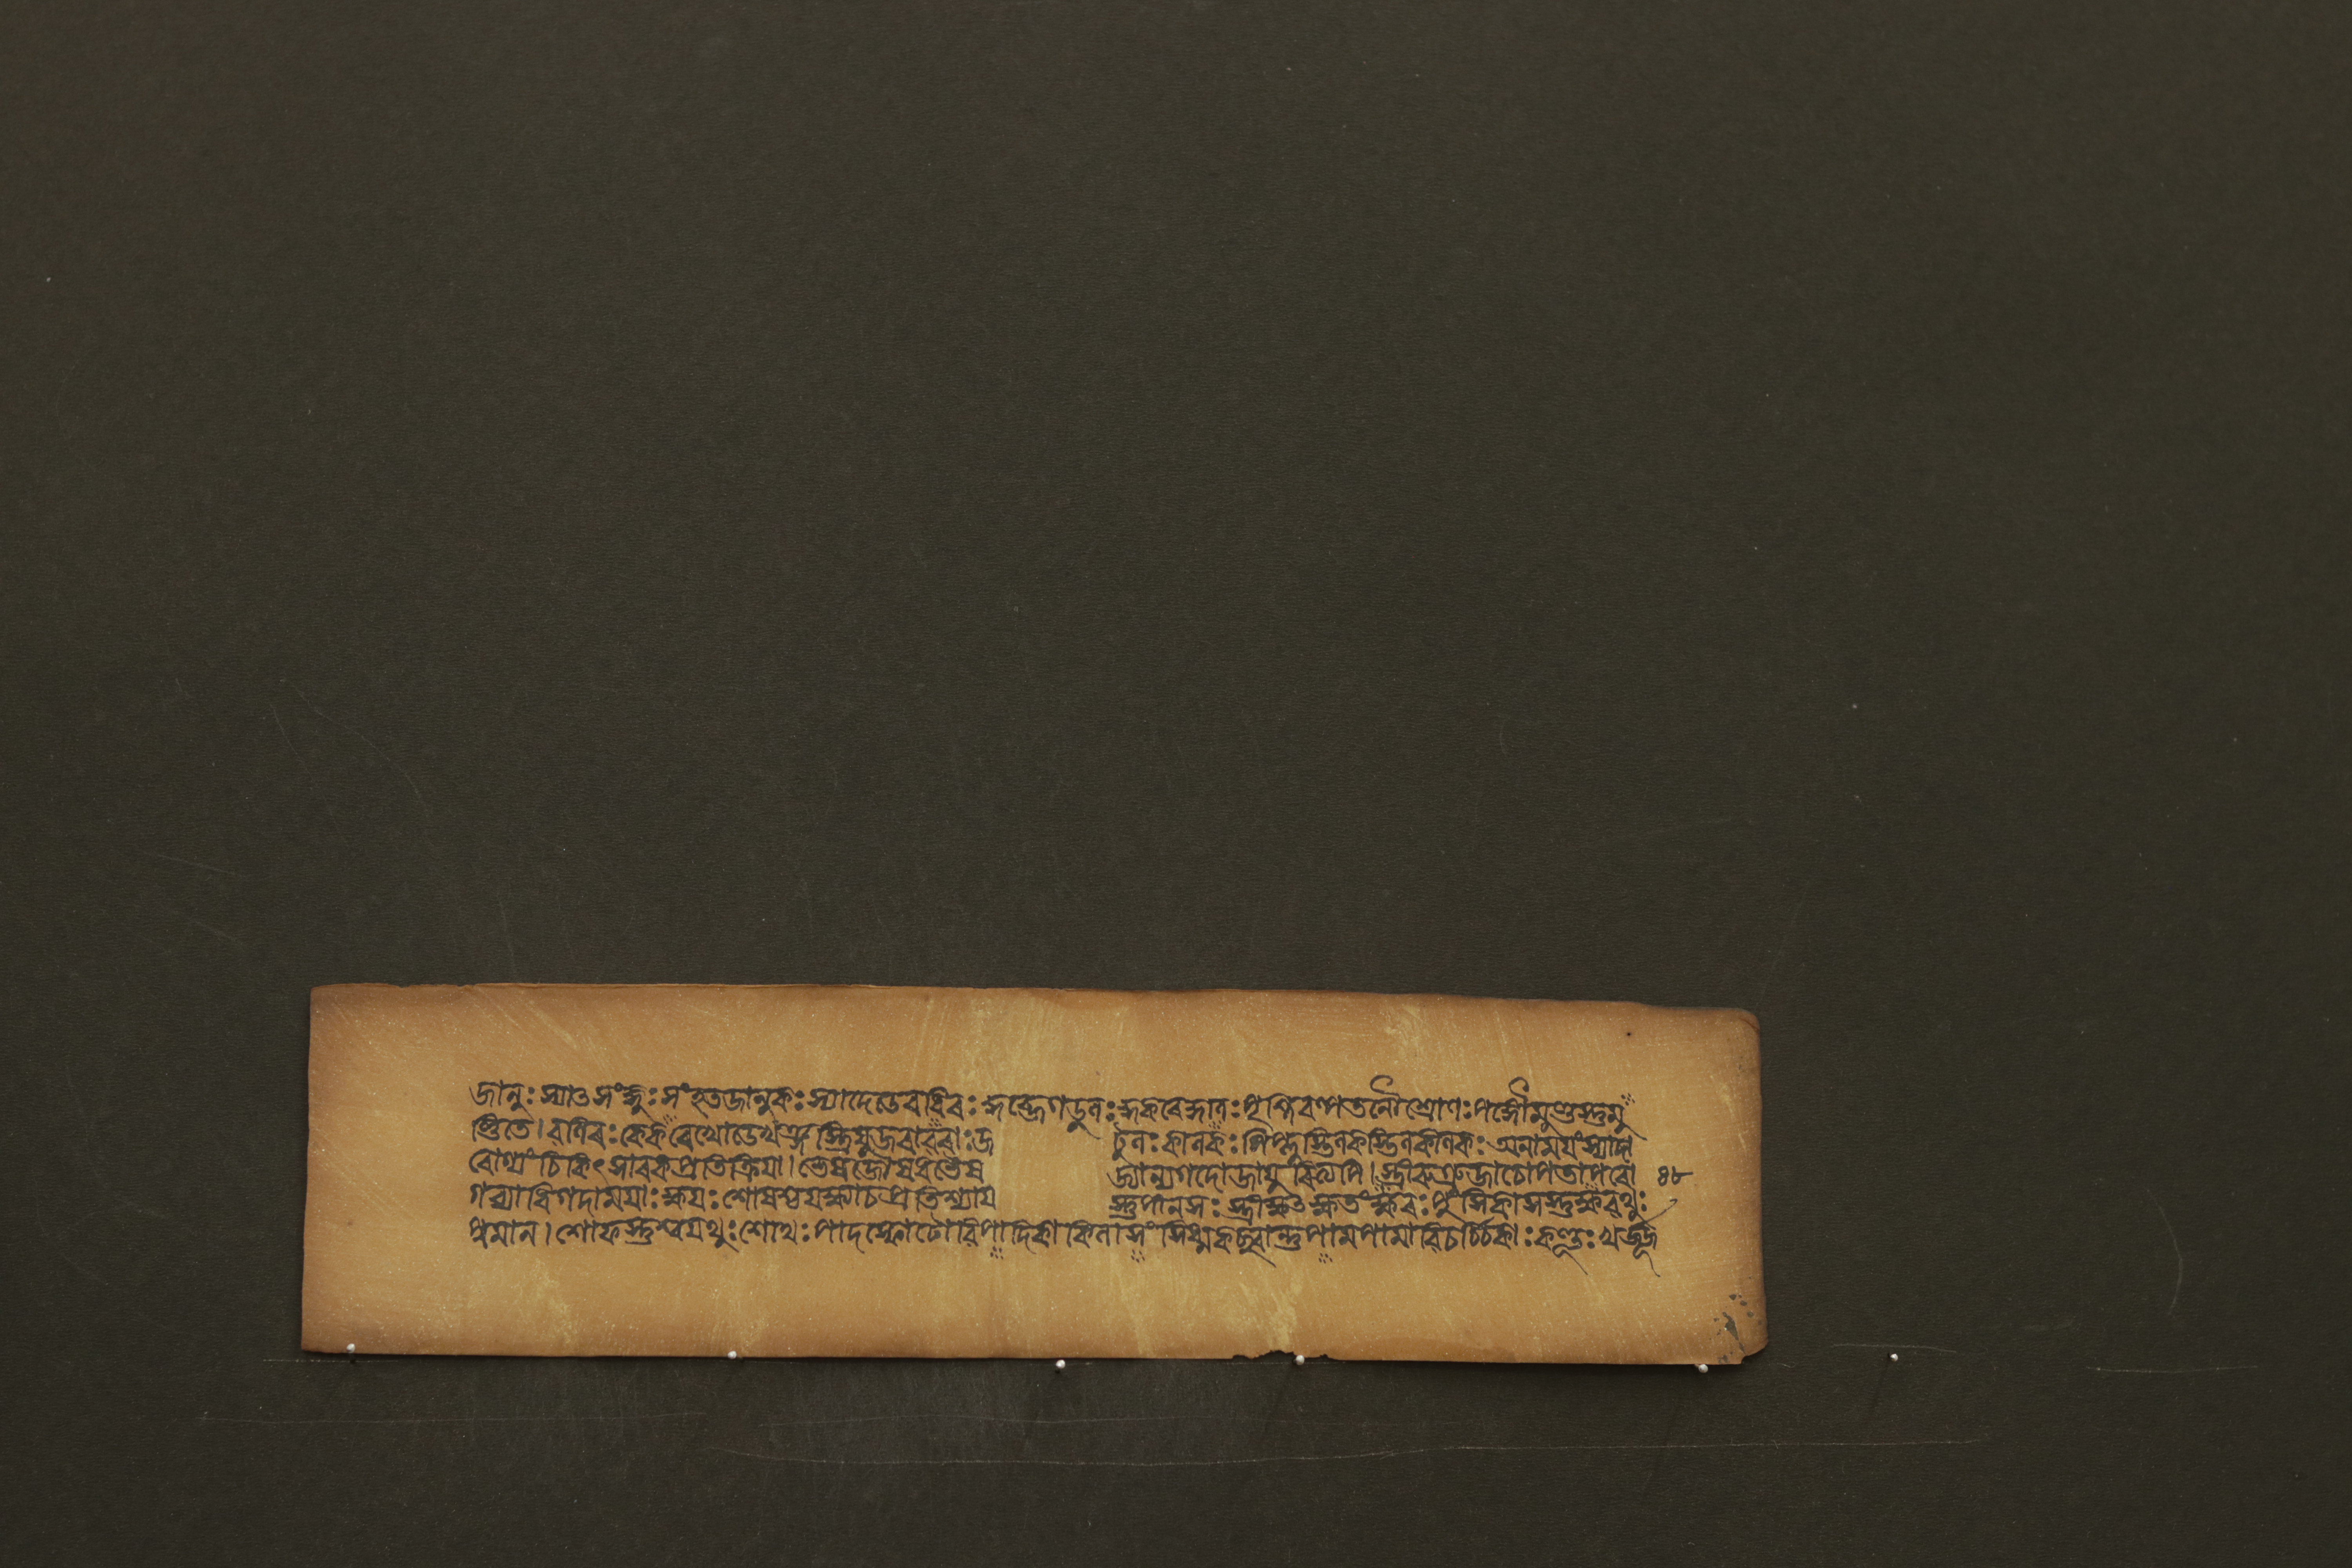 জানুঃস্যাত্সংজ্ঞুঃসংহতজানুকঃস্যাদেডেবধিৰঃকুব্জেগডুলঃকুকৰেকুণিঃপৃশ্নিৰল্পতনৌশ্রোণঃপঙ্গৌমুণ্ডস্তুমু
ণ্ডিতে।বলিৰঃকেকৰেখোডেখঞ্জস্ত্রিষুজৰাবৰাঃজ টুলঃকালকঃপিপ্লুস্তিলকস্তিলকালকঃঅনাময়ংস্যাদা
ৰোগ্যংচিকিৎসাৰুক্প্রতিক্রিয়া।ভেষজৌষধভৈষ জ্যান্যগদোজায়ুৰিত্যপি।স্ত্রীৰুগ্ৰুজাচোপতাপৰো ৪৮
গব্যাধিগদাময়াঃক্ষয়ঃশোষশ্চয়ক্ষ্মাচপ্রতিশ্যায় স্তুপীনসঃস্ত্রীক্ষুত্ক্ষুতংক্ষবঃপুংসিকাসস্তুক্ষবথুঃ
পুমান।শোফস্তুশ্বয়থুঃশোথঃপাদস্ফোটোবিপাদিকাকিলাসংসিধ্মকচ্ছ্বান্তুপামপামাবিচর্চিকাঃকণ্ডূঃখর্জূ